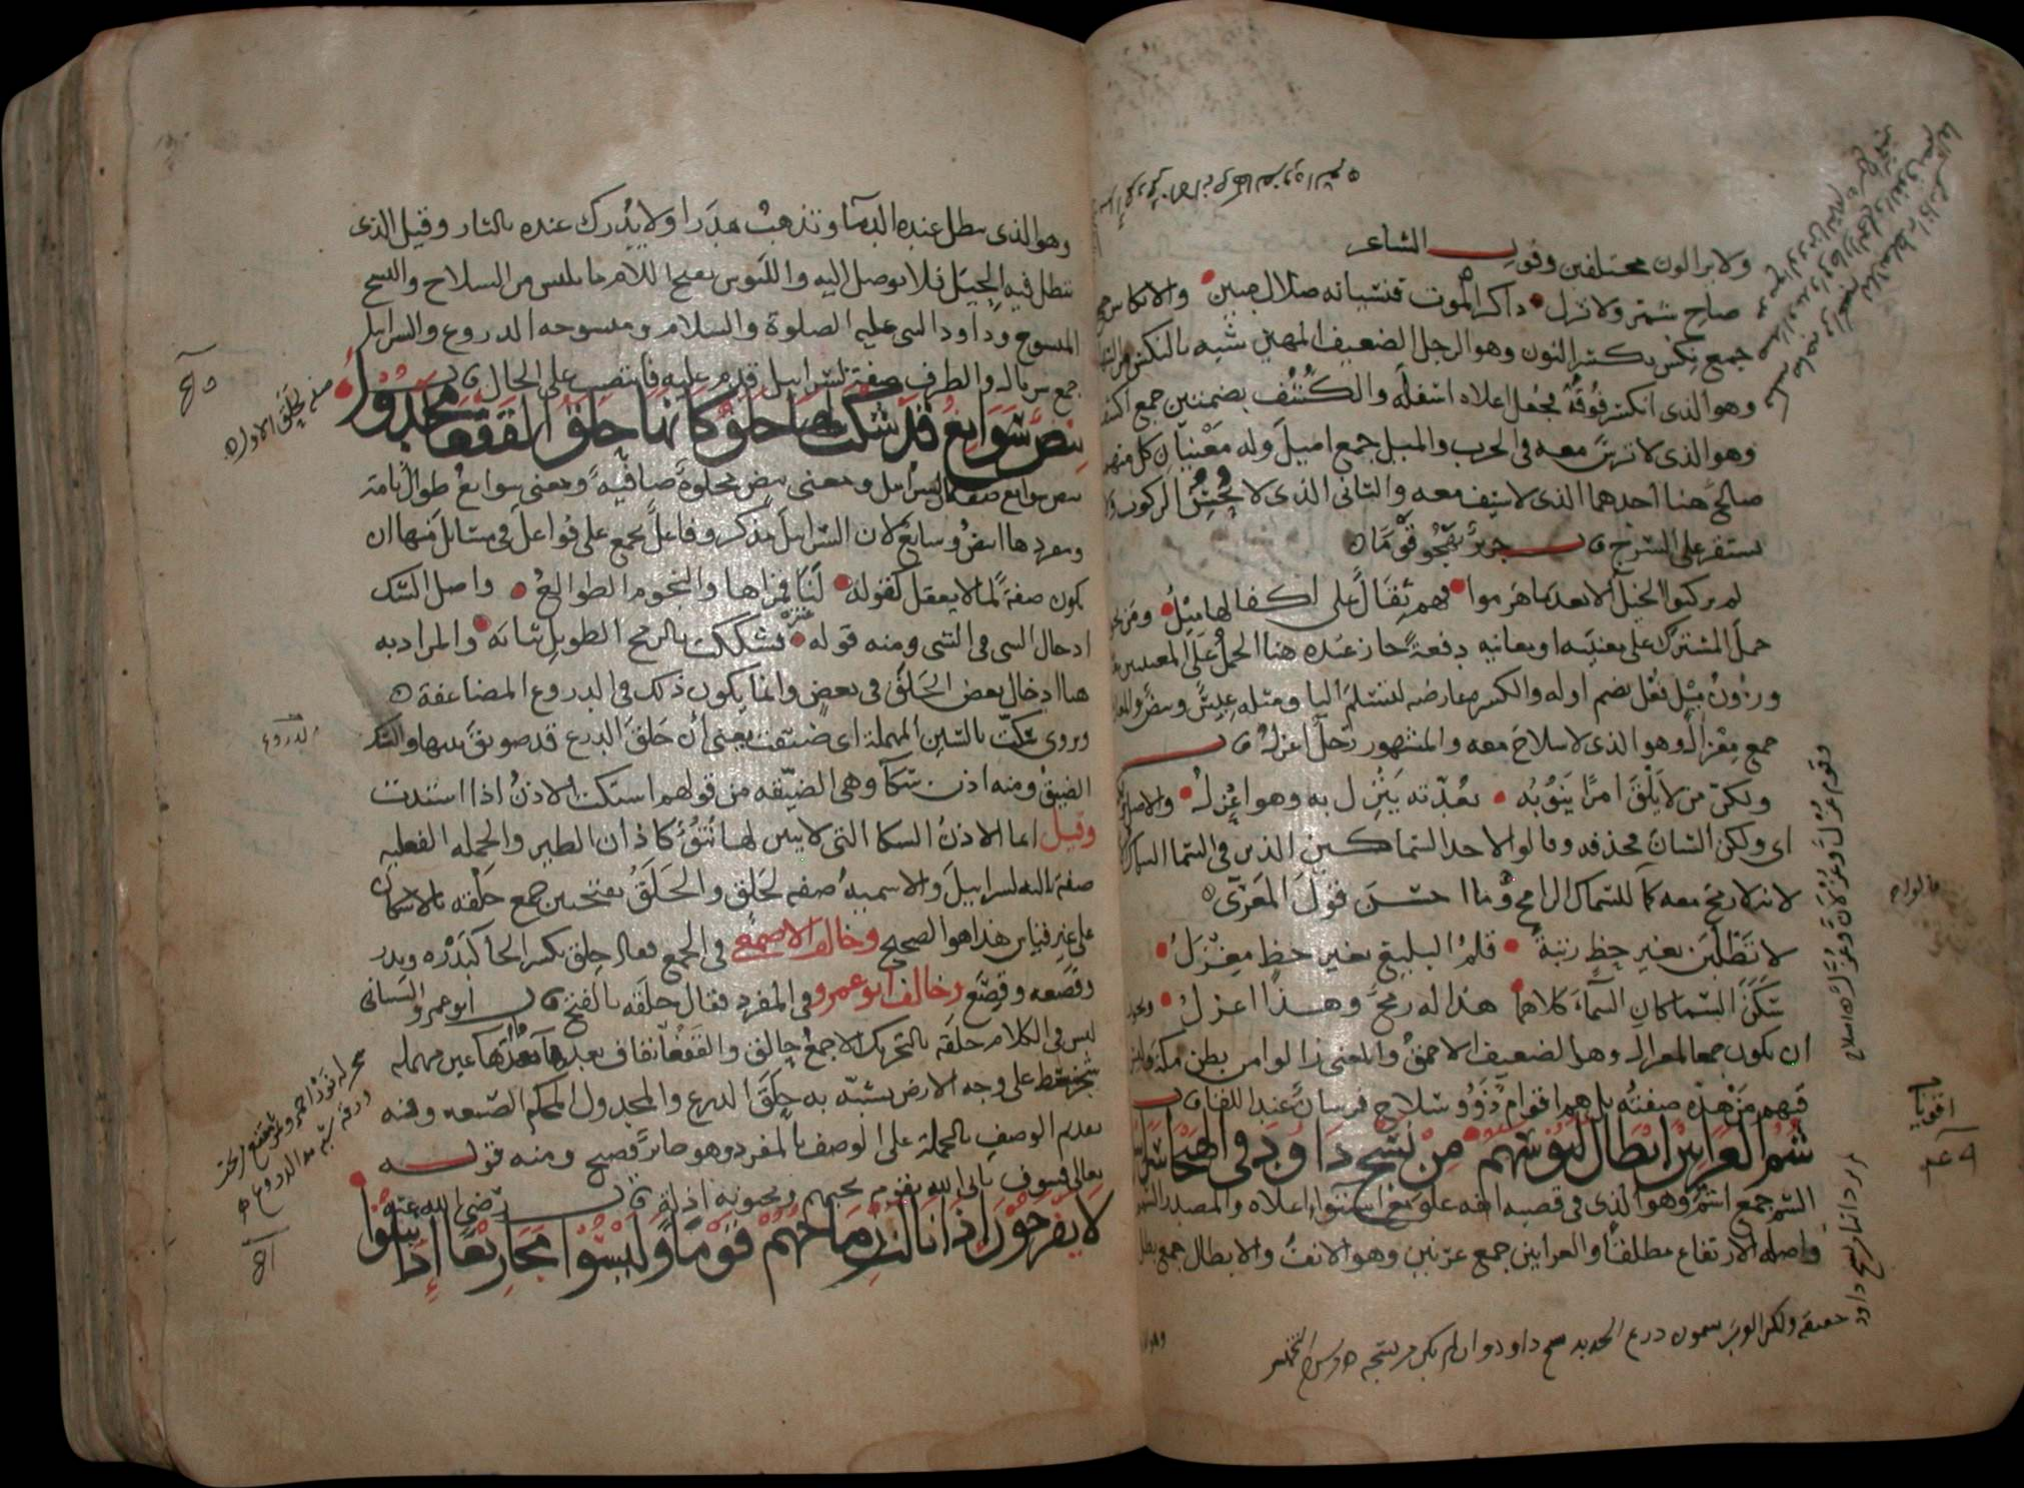 ولا يزالون مختلفين وقول الشاعر
صاح شمر ولا تزل ذاكر الموت فنسيانه ضلال مبين والانكاس
جمع نكس بكسر النون وهو الرجل الضعيف المهين شبه بالنكس من
وهو الذى انكسر فوقه فجعل اعلاه اسفله والكشف بضمتين جمع اكشف
وهو الذى لا ترس معه فى الحرب والميل جمع اميل وله معنيان كل منهما
صالح هنا احدهما الذى لا سيف معه والثانى الذى لا يحسن الركوب
يستقر على السرج قال جرير يهجو قوما
لم يركبوا الخيل الا بعدما هرموا فهم ثقال على اكفالها ميل ومن
حمل المشترك على معنييه او معانيه دفعة جاز عنده هنا الحمل على المعنيين
وزن ميل فعل بضم اوله والكسر عارض لتسلم اليا ومثله عيس وبيض
جمع معزال وهو الذى لا سلاح معه والمشهور رجل اعزل قال
ولكن من لا يلق امرا ينوبه بعدته ينزل به وهو اعزل والاصل
اى ولكن الشان فحذفه وقالوا لاحد السماكين الذين فى السما السماك
لانه لا رمح معه كما للسماك الرامح وما احسن قول المعرى
لا تطلبن بغير حظ رتبة قلم البليغ بغير حظ مغزل
سكن السماكان السماء كلاهما هذا له رمح وهذا اعزل
ان يكون جمعا لمعزال وهو الضعيف الاحمق والمعنى زالوا من بطن مكة
فيهم من هذه صفته بل هم اقوام ذوو سلاح فرسان عند اللقا قال
شم العرانين ابطال لبوسهم من نسج داود فى الهيجا
الشم جمع اشم وهو الذى فى قصبة انفه علو مع استواء اعلاه والمصدر الشمم
واصله الارتفاع مطلقا والعرانين جمع عرنين وهو الانف والابطال جمع بطل
وقوم عزل وعزلان وعزل
وهو الذى تبطل عنده الدماء وتذهب هدرا ولا يدرك عنده بالثار وقيل الذى
تبطل فيه الحيل فلا يوصل اليه واللبوس بفتح اللام ما يلبس من السلاح والنسج
المنسوج وداود النبى عليه الصلوة والسلام ومنسوجه الدروع والسرابيل
جمع سربال والطرف صفة لسرابيل قدم عليه فانتصب على الحال قال
بيض سوابغ قد شكت لها حلق كانها حلق القفعاء مجدول
بيض سوابغ صفة لسرابيل ومعنى بيض مجلوة صافية ومعنى سوابغ طوال تامة
ومفردها ابيض وسابغ لان السرابيل مذكر وفاعل يجمع على فواعل فى مسائل منها ان
يكون صفة لما لا يعقل كقوله لنا قمراها والنجوم الطوالع واصل الشك
ادخال الشى فى الشى ومنه قوله فشككت بالرمح الطويل ثيابه والمراد به
هنا ادخال بعض الحلق فى بعض وانما يكون ذلك فى الدروع المضاعفة
وروى سكت بالسين المهملة اى ضيقت يعنى ان حلق الدرع قد ضويق بينها والسك
الضيق ومنه اذن سكا وهى الضيقه من قولهم استكت الاذن اذا استدت
وقيل انما الاذن السكا التى لا يبين لها نتوء كاذان الطير والجمله الفعليه
صفة ثالثه لسرابيل والاسمية صفه لحلق والحلق بفتحتين جمع حلقه بالاسكان
على غير قياس هذا هو الصحيح وخالف الاصمعى فى الجمع فقال حلق بكسر الحا كبدره وبدر
وقصعه وقصع وخالف ابو عمرو فى المفرد فقال حلقه بالفتح قال ابو عمرو الشيبانى
ليس فى الكلام حلقه بالتحريك الا جمع حالق والقفعا بقاف بعدها فا بعدها عين مهمله
شجر ينبسط على وجه الارض يشبه به حلق الدرع والمجدول المحكم الصنعه وفيه
تقديم الوصف بالجملة على الوصف بالمفرد وهو جائز فصيح ومنه قوله
تعالى فسوف ياتى الله بقوم يحبهم ويحبونه اذلة قال رضى الله عنه
لا يفرحون اذا نالت رماحهم قوما وليسوا مجازيعا اذا نيلوا